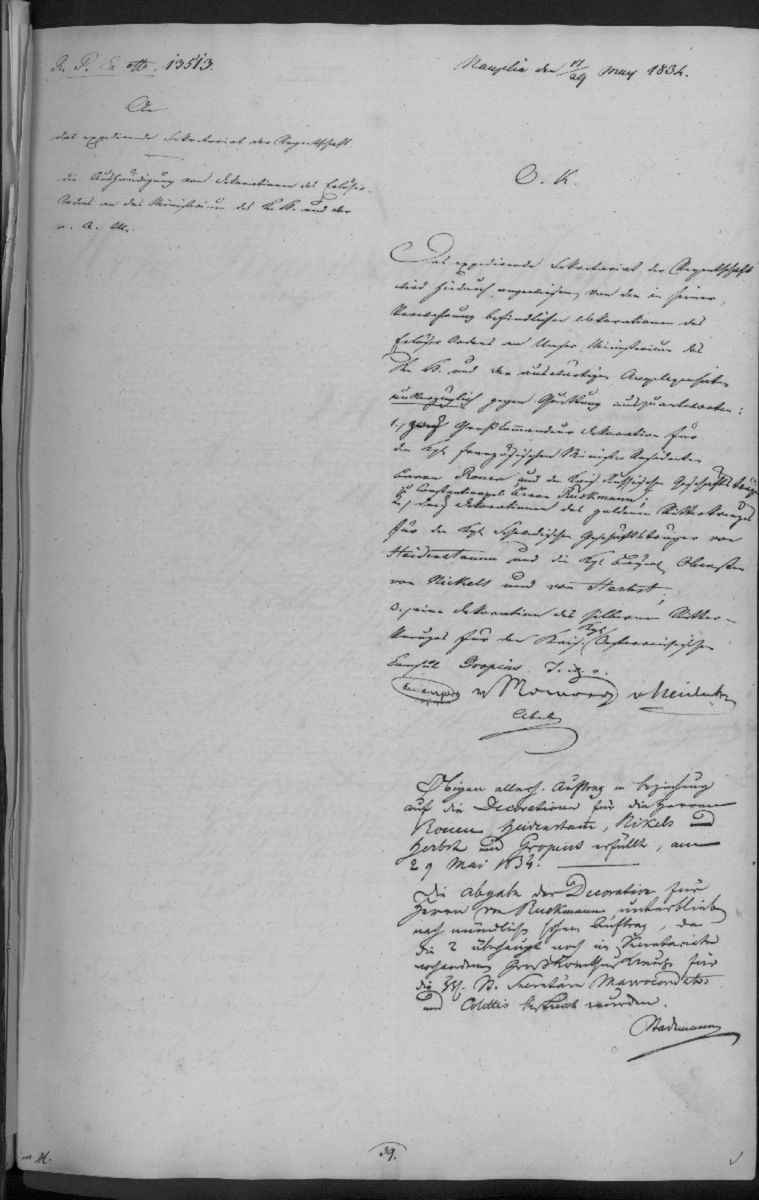 13513.
An
das expedirende Sekretariat der Regentschaft.
die Aushändigung von Dekorationen des Erlöser-
Ordens an das Ministerium des K. H. und der
a. A. btr.
Nauplia den 17/29 May 1834.
O. K.
Das expedirende Sekretariat der Regentschaft
wird hiedurch angewiesen, von den in seiner
Verwahrung befindlichen Dekorationen des
Erlöser Ordens an Unser Ministerium des
K. H. und der auswärtigen Angelegenheiten
unverzüglich gegen Quittung auszuantworten:
1., zwey Großkommandeur Dekoration für
den Kgl. französischen Minister Residenten
Baron Rouen und den Kais. Russischen Geschäftsträger
zu Constantinopel Herrn Ruckmann;
2., drey Dekorationen des goldenen Ritterkreuzes
für den Kgl. Schwedischen Geschäftsträger von
Heidenstamm und die Kgl. Bayr. Obersten
von Nickels und von Herbst;
3., eine Dekoration des silbernen Ritter-
kreuzes für den Kais. Kgl. Oesterreichischen
Consul Gropius.
v Maurer v Heideck
Abel
Obigen allerh. Auftrag in Beziehung
auf die Decorationen für die Herren
Rouen, Heidenstam, Nikels und
Herbst und Gropius erfüllt, am
29 Mai 1834.
Die Abgabe der Decoration für
Herrn von Ruckmann unterblieb
nach mündlich hohem Auftrag, da
die 2 überhaupt noch im Secretariate
vorhandenen Großkomthur Kreuze für
die St. Secretäre Mavrocordatos
und Colettis bestimt wurden.
Stademann
39.